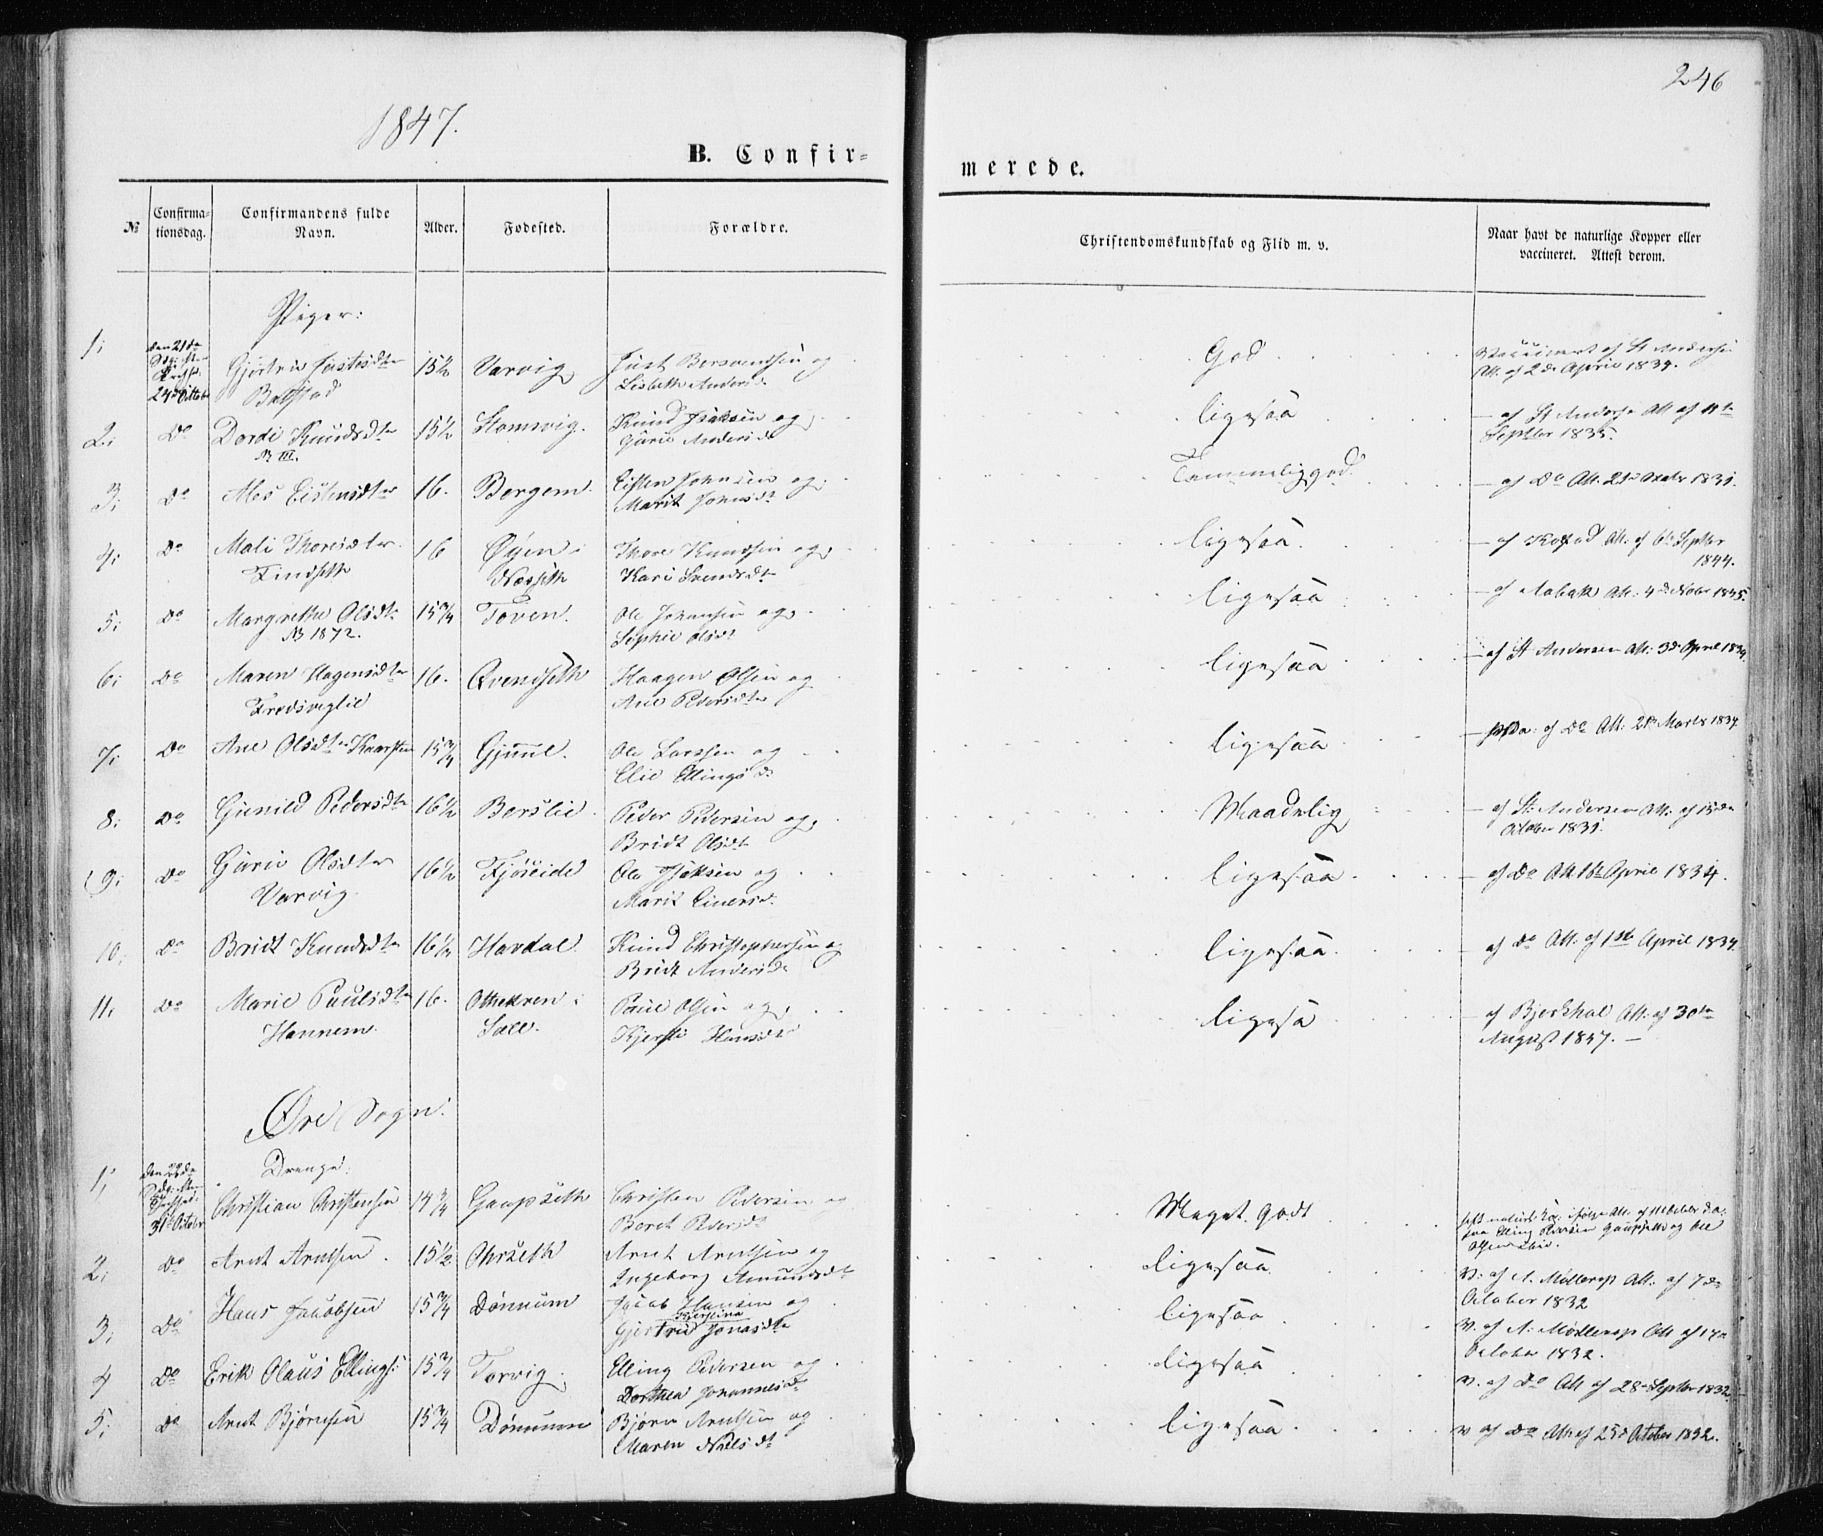 246
1847.
B. Confir-
merede.
№
Confirma-
tionsdag.
Confirmandens fulde
Navn.
Alder.
Fødested.
Forældre.
Christendomskundskab og Flid m. v.
Naar havt de naturlige Kopper eller
vaccineret. Attest derom.
Piger:
1;
24de Octobr
Gjertrud Justesdtr
Batstad
15½
Varvig
Just Bersvendsen og
Lisbeth Andersd.
God
Vaccineret af St Andersen
Att. af 2de April 1834.
2;
Do
Dordi Knudsdtr
N III.
15½
Stomsvig.
Knud Isaksen og
Gurie Andersd
ligesaa
— af St Anders Att af 11te
Septbr 1835.
3;
Do
Mos Eistensdtr
16.
Bergem.
Eisten Johnsen og
Marit Johnsdt
Temmelig god
— af Do Att. 21de Octobr 1831.
4;
Do
Mali Thoresdtr
Findseth
16
Øyen i
Næsseth
Thore Knudsen og
Kari Svendsdtr
ligesaa.
— af Att. af 6te Septbr
1844.
5;
Do
Margrethe Olsdtr
N 1872.
15¾
Toven.
Ole Johansen og
Sophie Olsdt
ligesaa
— af Aabak Att. 4de Novbr 1845.
6;
Do
Maren Hagensdtr
Trodsveglie
16.
Qvendseth
Haagen Olsen og
Ane Pedersdtr
ligesaa
— af St Andersen Att. 3de April 1834.
7;
Do
Ane Olsdtr Knarsten
15¾
Gjmul.
Ole Larssen og
Elie Ellingsd
ligesaa
af Do Att. 21de Marts 1834
8;
Do
Gunild Pedersdtr
16½
Berslie
Peder Pedersen og
Bridt Olsdt
Maadelig
— af St: Andersen Att. af 13de
October 1831.
9;
Do
Gurie Olsdtr
Varvig.
16½
Fjøseide
Ole Isaksen og
Marit Einersd.
ligesaa
— af Do Att 16de April 1834.
10;
Do
Bridt Knudsdtr
16½
Havdal
Knud Christophersen og
Bridt Andersd
ligesaa.
af Do Att. af 1ste April 1834.
11;
Do
Marie Paulsdtr
Hannem
16.
Otthekren i
Sæle.
Paul Olsen og
Kjersti Hansdt
ligesa
— af Bjerkhal Att. af 30te
August 1847. —
Øre Sogn:
Drenge:
1;
31te October
Christian Christensen
14¾
Gaupseth
Christen Pedersen og
Beret Pedersdt
Meget Godt
fra Elling Pedersen Gaupseth og Ole
Olsen
2;
Do
Arnt Arntsen
15½
Ohrseth
Arnt Arntsen og
Ingeborg Amundsdtr
ligesaa
V. af N. Møllerop Att. af 7de
October 1832
3;
Do
Hans Jacobsen
15¾
Dønnum
Jacob Hansen og
Kjerstina
Gjertrud Jonasdtr
ligesaa
V. af N. Møllerop Att af 17de
October 1832.
4
Do
Erik Olaus Ellings:
15¾
Torvig
Elling Pedersen og
Dorthea Johannesd
ligesaa
V. af Do Att af 28de Septbr 1832
5;
Do
Arnt Bjørnsen
15¾
Dønnum
Bjørn Arntsen og
Maren Nielsdt
ligesaa
V af Do Att af 25de October 1832.